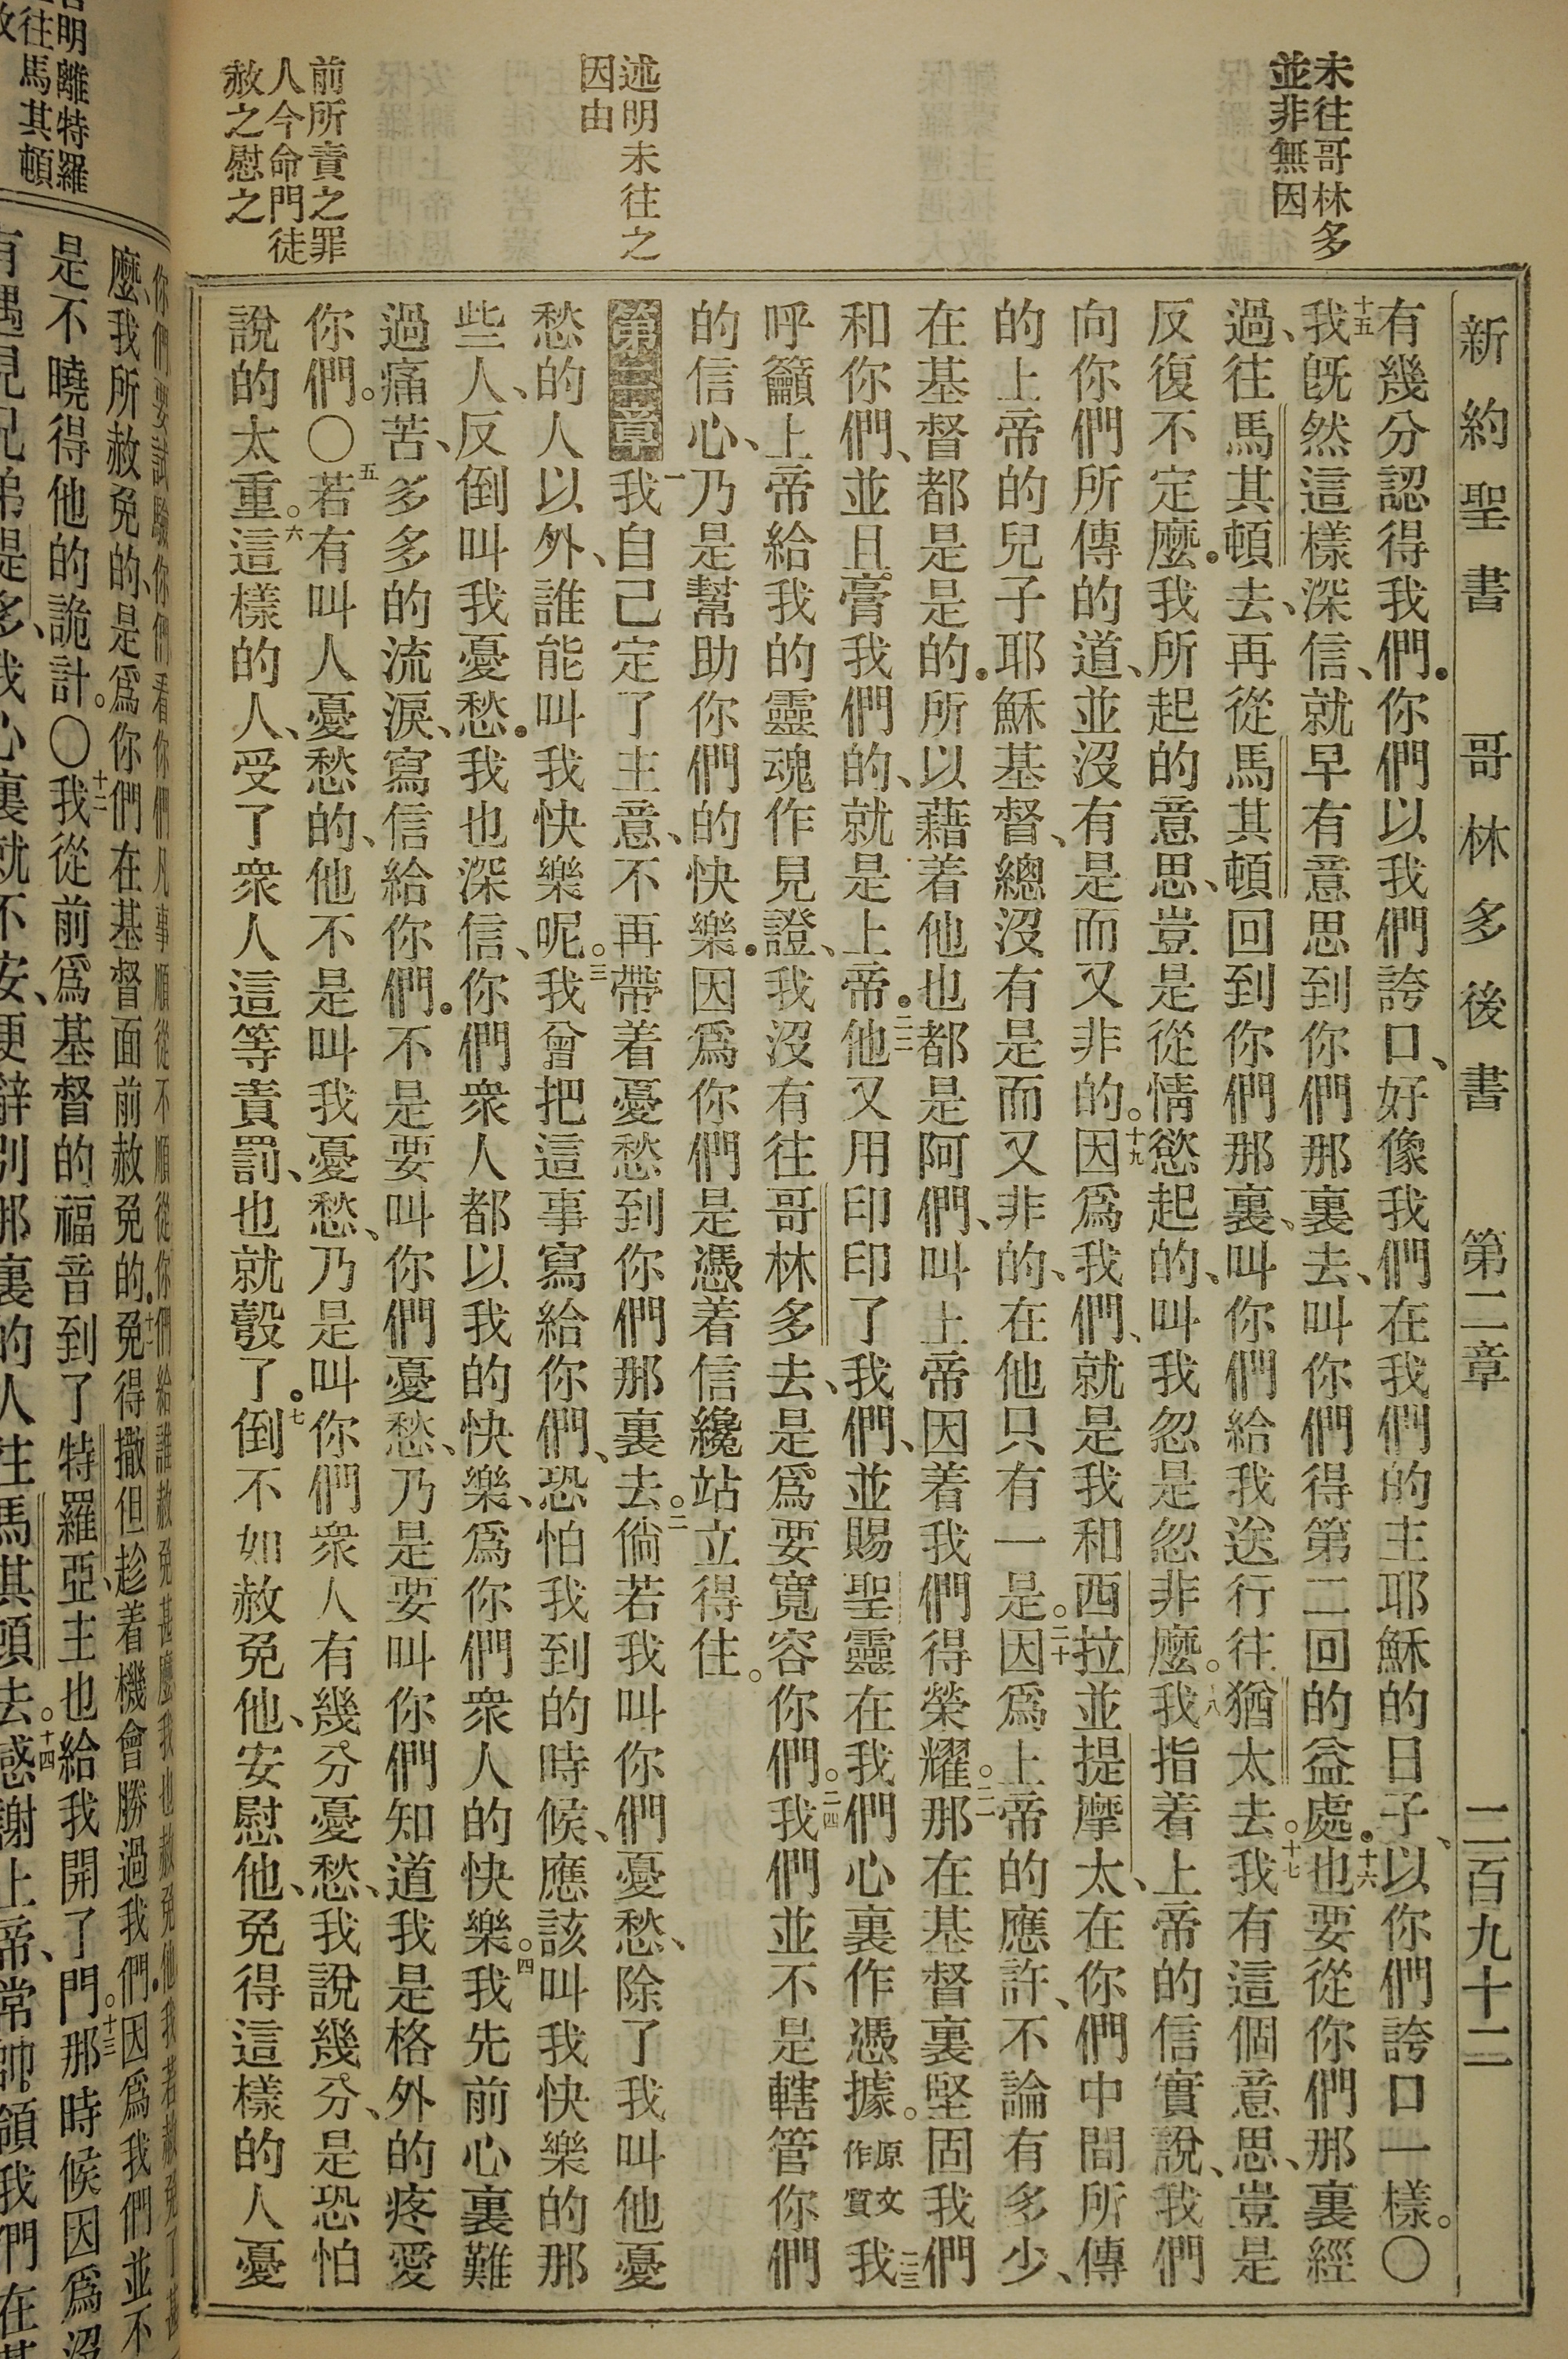 未往哥林多
並非無因
述明未往之
因由
前所責之罪
人今命門徒
赦之慰之
新約聖書　哥林多後書　第二章　二百九十二
有幾分認得我們．你們以我們誇口、好像我們在我們的主耶穌的日子、以你們誇口一樣。〇
十五我旣然這樣深信、就早有意思到你們那裏去、叫你們得第二回的益處．十六也要從你們那裏經
過、往馬其頓去、再從馬其頓回到你們那裏、叫你們給我送行往猶太去。十七我有這個意思、豈是
反復不定麼．我所起的意思、豈是從情慾起的、叫我忽是忽非麼。十八我指着上帝的信實說、我們
向你們所傳的道、並沒有是而又非的。十九因爲我們、就是我和西拉並提摩太、在你們中間所傳
的上帝的兒子耶穌基督、總沒有是而又非的、在他只有一是。二十因爲上帝的應許、不論有多少、
在基督都是是的．所以藉着他也都是阿們、叫上帝因着我們得榮耀。二一那在基督裏堅固我們
和你們、並且膏我們的、就是上帝．二二他又用印印了我們、並賜聖靈在我們心裏作憑據。原文作質二三我
呼籲上帝給我的靈魂作見證、我沒有往哥林多去、是爲要寬容你們。二四我們並不是轄管你們
的信心、乃是幫助你們的快樂．因爲你們是憑着信纔站立得住。
第二章一我自己定了主意、不再帶着憂愁到你們那裏去。二倘若我叫你們憂愁、除了我叫他憂
愁的人以外、誰能叫我快樂呢。三我曾把這事寫給你們、恐怕我到的時候、應該叫我快樂的那
些人、反倒叫我憂愁．我也深信、你們衆人都以我的快樂、爲你們衆人的快樂。四我先前心裏難
過痛苦、多多的流淚、寫信給你們．不是要叫你們憂愁、乃是要叫你們知道我是格外的疼愛
你們。〇五若有叫人憂愁的、他不是叫我憂愁、乃是叫你們衆人有幾分憂愁、我說幾分、是恐怕
說的太重。六這樣的人、受了衆人這等責罰、也就彀了．七倒不如赦免他、安慰他、免得這樣的人憂
明離特羅
往馬其頓
你們要試驗你們看你們凡事順從不順從你們給誰赦免甚麼我也赦免他我若赦免了甚
麼、我所赦免的、是爲你們在基督面前赦免的．十一免得撒但趁着機會勝過我們．因爲我們並不
是不曉得他的詭計。〇十二我從前爲基督的福音到了特羅亞、主也給我開了門。十三那時候因爲沒
有遇見兄弟提多、我心裏就不安、便辭別那裏的人往馬其頓去。十四感謝上帝、常帥領我們在基